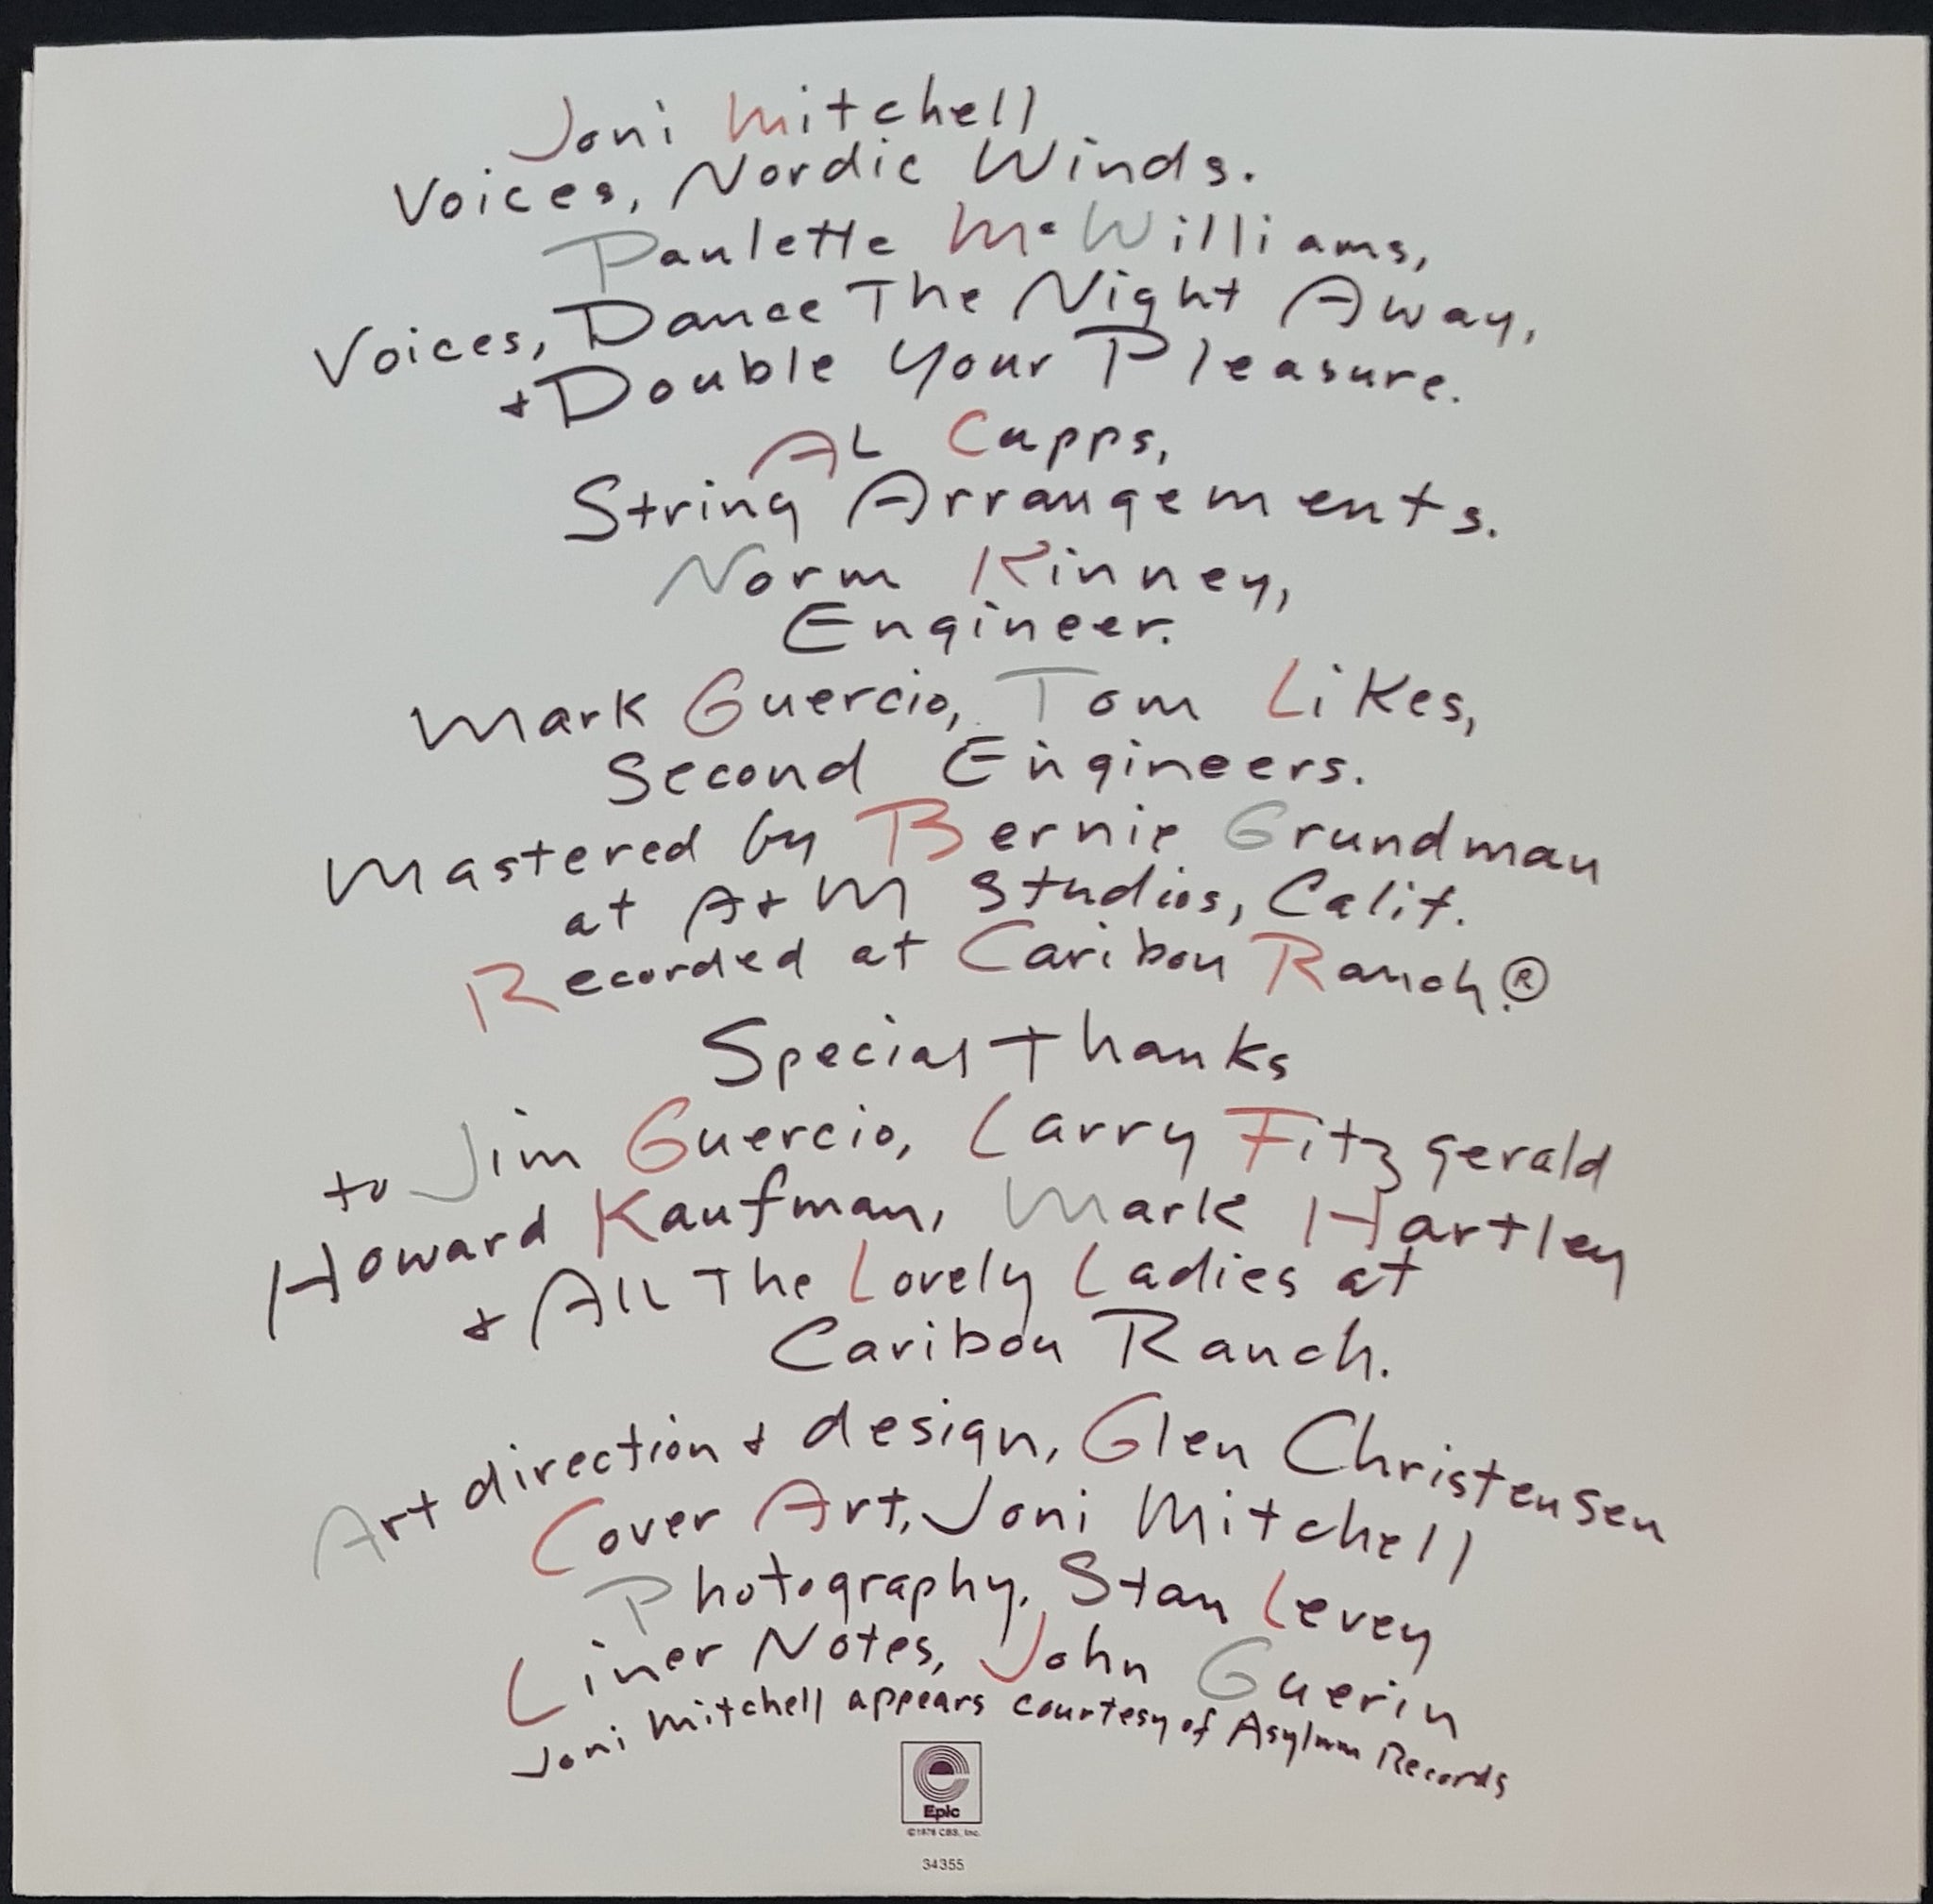 Joni Mitchell
Voices, Nordic Winds.
Paulette McWilliams,
Voices, Dance The Night Away,
+ Double Your Pleasure.
AL Capps,
String Arrangements.
Norm Kinney,
Engineer.
Mark Guercio, Tom Likes,
Second Engineers.
Mastered by Bernie Grundman
at A+M Studios, Calif.
Recorded at Caribou Ranch.®
Special Thanks
to Jim Guercio, Larry Fitzgerald
Howard Kaufman, Mark Hartley
+ All The Lovely Ladies at
Caribou Ranch.
Art direction + design, Glen Christensen
Cover Art, Joni Mitchell
Photography, Stan Levey
Liner Notes, John Guerin
Joni Mitchell appears courtesy of Asylum Records
Epic
©1976 CBS, Inc.
34355